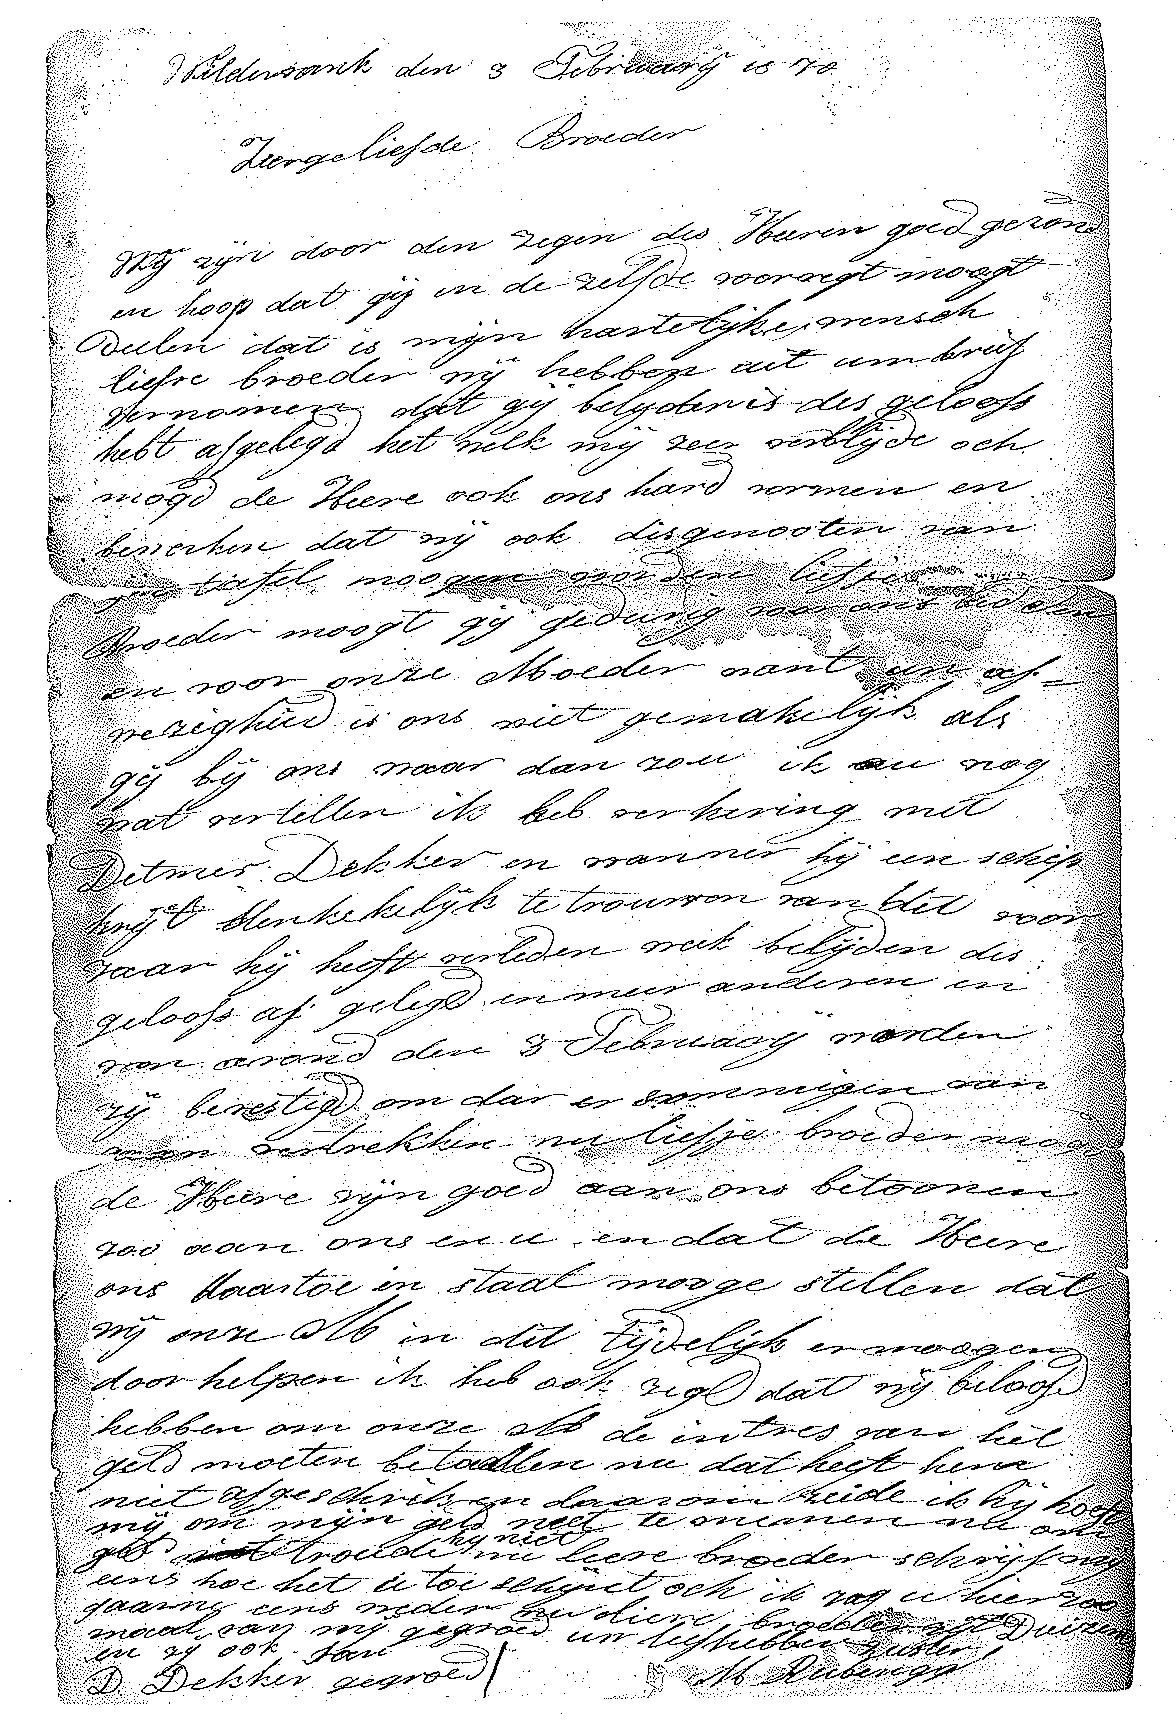 Wildervank den 3 Februarij 1870
Zeergeliefde Broeder
Wij zijn door den zegen des Heeren goed gezond
en hoop dat gij in de zelfde voorregt moogt
Deelen dat is mijn hartelijke wensch
liefve broeder wij hebben uit uw brief
vernomen dat gij belydenis des geloofs
hebt afgelegd het welk mij zeer verblijde och
mogd de Heere ook ons hard vormen en
bewerken dat wij ook disgenooten van
zijn tafel moogen worden liefve
Broeder moogt gij gedurig voor ons bidden
en voor onze Moeder want uw af=
wezigheid is ons niet gemakelijk als
gij bij ons waar dan zou ik au nog
wat vertellen ik heb verkering met
Detmer Dekker en wanner hij een schip
krijgt denkekelijk te trouwen van dit voor
jaar hij heeft verleden week belijden des
geloofs af gelegd en meer anderen en
van avond den 3 Februarij worden
zij bevestigd om dar er sommigen van
vertrekken nu liefje broeder
de Heere zijn goed aan ons betoonen
zoo aan ons en u en dat de Heere
ons daartoe in staat mooge stellen dat
wij onze M in dit tijdelijk er moogen
door helpen ik heb ook zegd dat wij beloofd
hebben om onze M de intres van het
geld moeten betaallen nu dat heeft hem
niet afgeschrik en daarom zeide ik hij hoeft
mij om mijn geld neet te menen nu om
geld troude hij niet nu lieve broeder schrijf mij
eens hoe het u toe schijnt och ik zag u hier zoo
gaarne eens weder nu diere broeder zijt Duizen
maal van mij gegroed uw liefhebben zuster
en zij ook van
D. Dekker gegroed M Reibinga